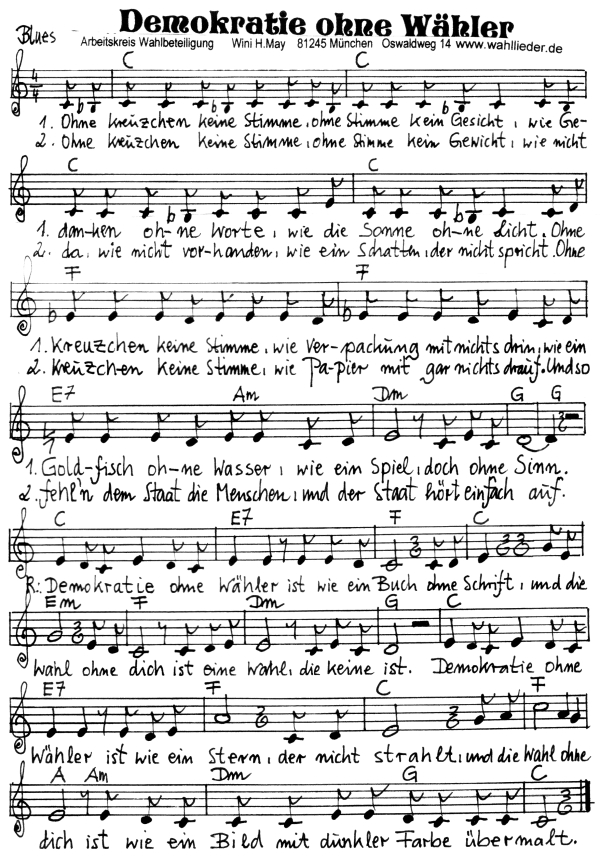 Demokratie ohne Wähler
Blues
Arbeitskreis Wahlbeteiligung Wini H.May 81245 München Oswaldweg 14 www.wahllieder.de
C C
4/4
1. Ohne Kreuzchen keine Stimme, ohne Stimme kein Gesicht, wie Ge-
2. Ohne Kreuzchen keine Stimme, ohne Stimme kein Gewicht, wie nicht
C C
1. dan-ken oh-ne Worte, wie die Sonne oh-ne Licht. Ohne
2. da, wie nicht vor-handen, wie ein Schatten, der nicht spricht. Ohne
F F
1. Kreuzchen keine Stimme, wie Ver-packung mit nichts drin, wie ein
2. Kreuzchen keine Stimme, wie Pa-pier mit gar nichts drauf. Und so
E7 Am Dm G G
1. Gold-fisch oh-ne Wasser, wie ein Spiel, doch ohne Sinn.
2. fehl'n dem Staat die Menschen, und der Staat hört einfach auf.
C E7 F C
R.: Demokratie ohne Wähler ist wie ein Buch ohne Schrift, und die
Em F Dm G C
Wahl ohne dich ist eine Wahl, die keine ist. Demokratie ohne
E7 F C F
Wähler ist wie ein Stern, der nicht strahlt, und die Wahl ohne
A Am Dm G C
dich ist wie ein Bild mit dunkler Farbe übermalt.